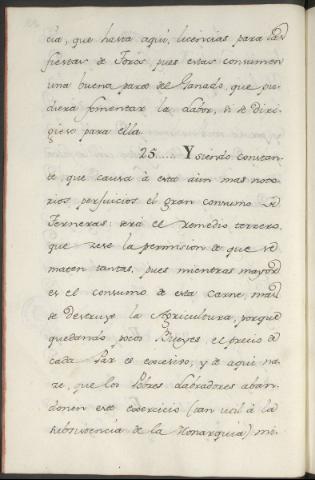 cia, que hasta aquí, licencias para las
fiestas de Toros, pues estas consumen
una buena parte del Ganado, que pu-
diera fomentar la Labor, si se diri-
giese para ella.
25..... Y siendo constan-
te que causa à esta aùn mas noto-
rios perjuicios el gran consumo de
Terneras: serà el remedio tercero,
que zese la permision de que se
maten tantas, pues mientras mayor
es el consumo de esta carne, mas
se destruye la Agricultura, porque
quedando pocos Bueyes, el precio de
cada Par es excesivo, y de aqui na-
ze, que los Pobres Labradores aban-
donen este exercicio (tan util à la
subsistencia de la Monarquia) mi-